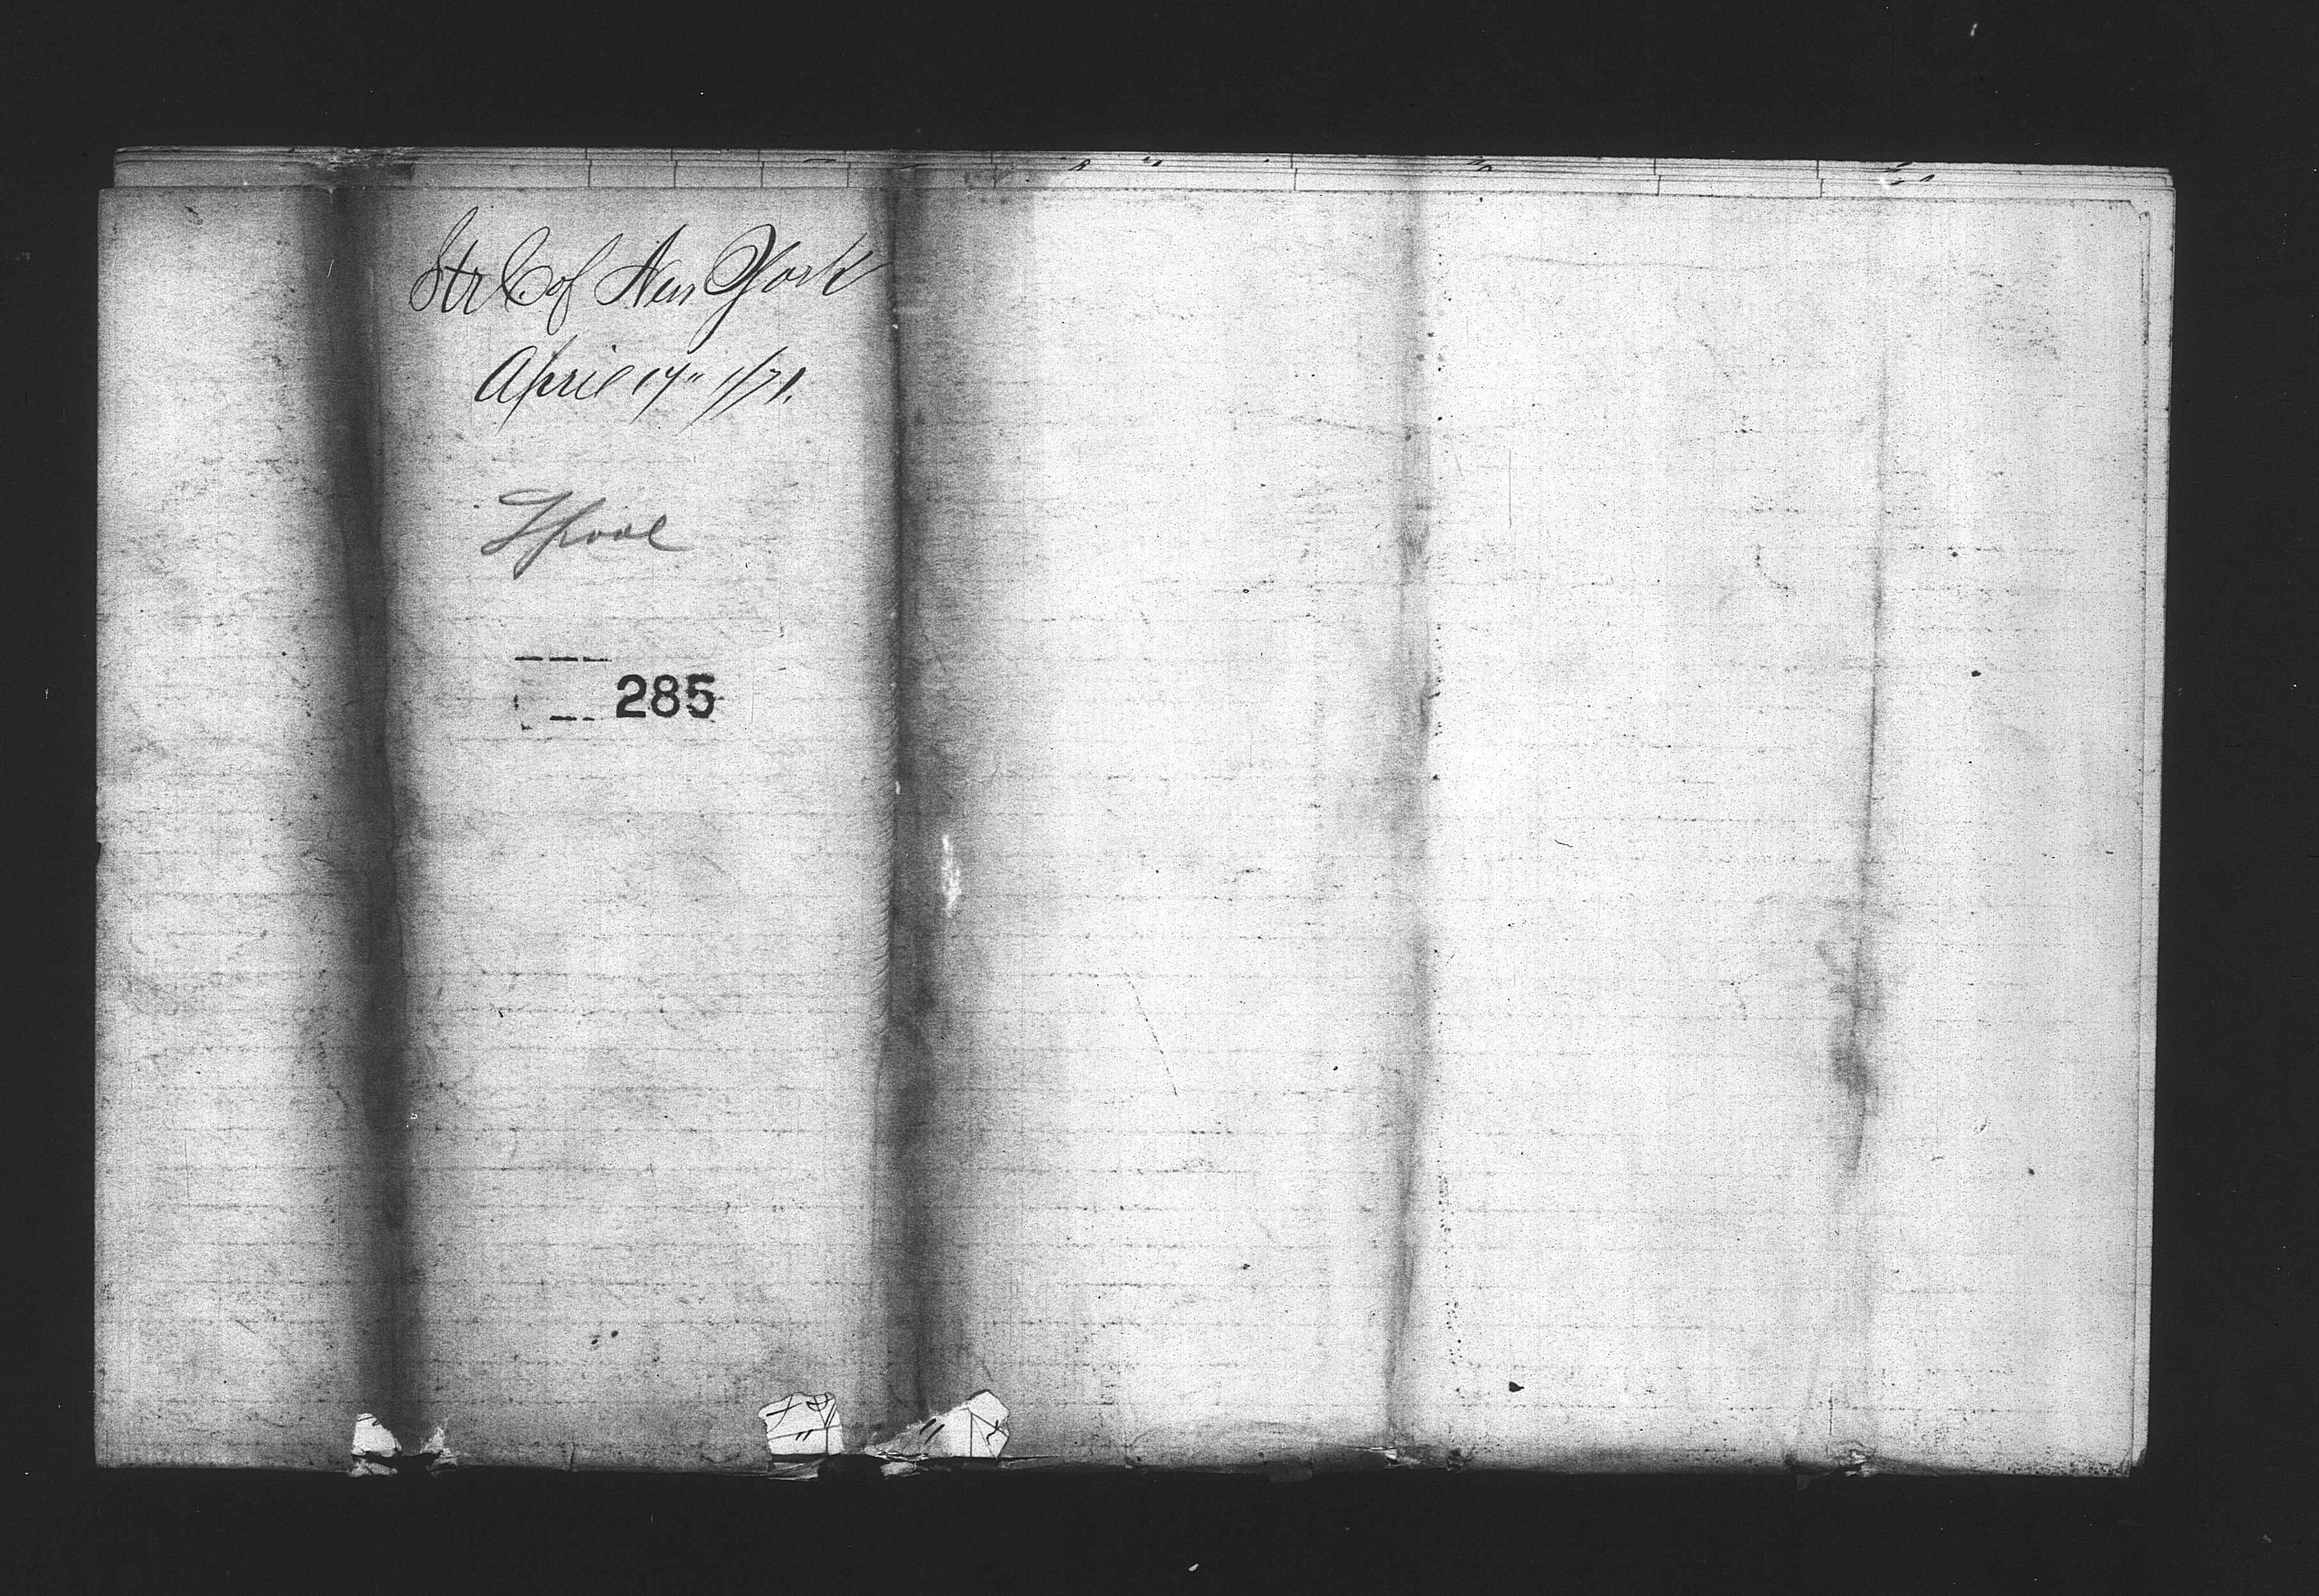 Str C of New York
April 17" 1/71.
Lpool
285